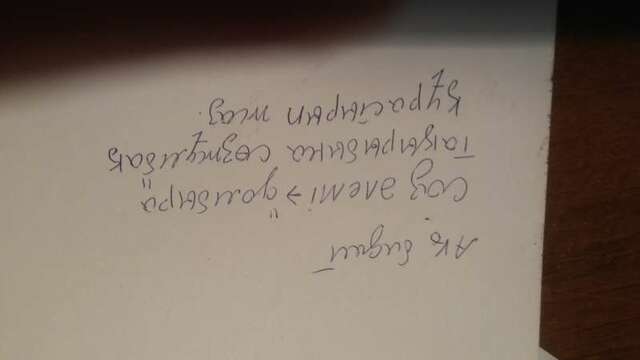 Ақ бидай
Саз әлемі → "домбыра"
Тақырыбына сөзжұмбақ
құрастырып жаз.